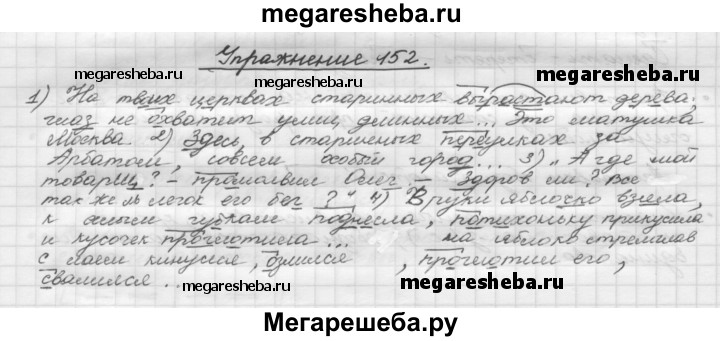 megaresheba.ru
Упражнение 152.
megaresheba.ru megaresheba.ru megaresheba.ru
1) На твоих церквах старинных вырастают дерева,
глаз не охватит улиц длинных... Это матушка
Москва. 2) Здесь в старинных переулках за
Арбатом, совсем особый город... 3) „А где мой
товарищ? – промолвил Олег, – Здоров ли? Всё
так же ль легок его бег ? 4) В руки яблочко взяла,
к алым губкам поднесла, потихоньку прикусила
и кусочек проглотила... на яблоко стремглав
с лаем кинулся, озлился , проглотил его,
свалился ...
megaresheba.ru megaresheba.ru
Мегарешеба.ру